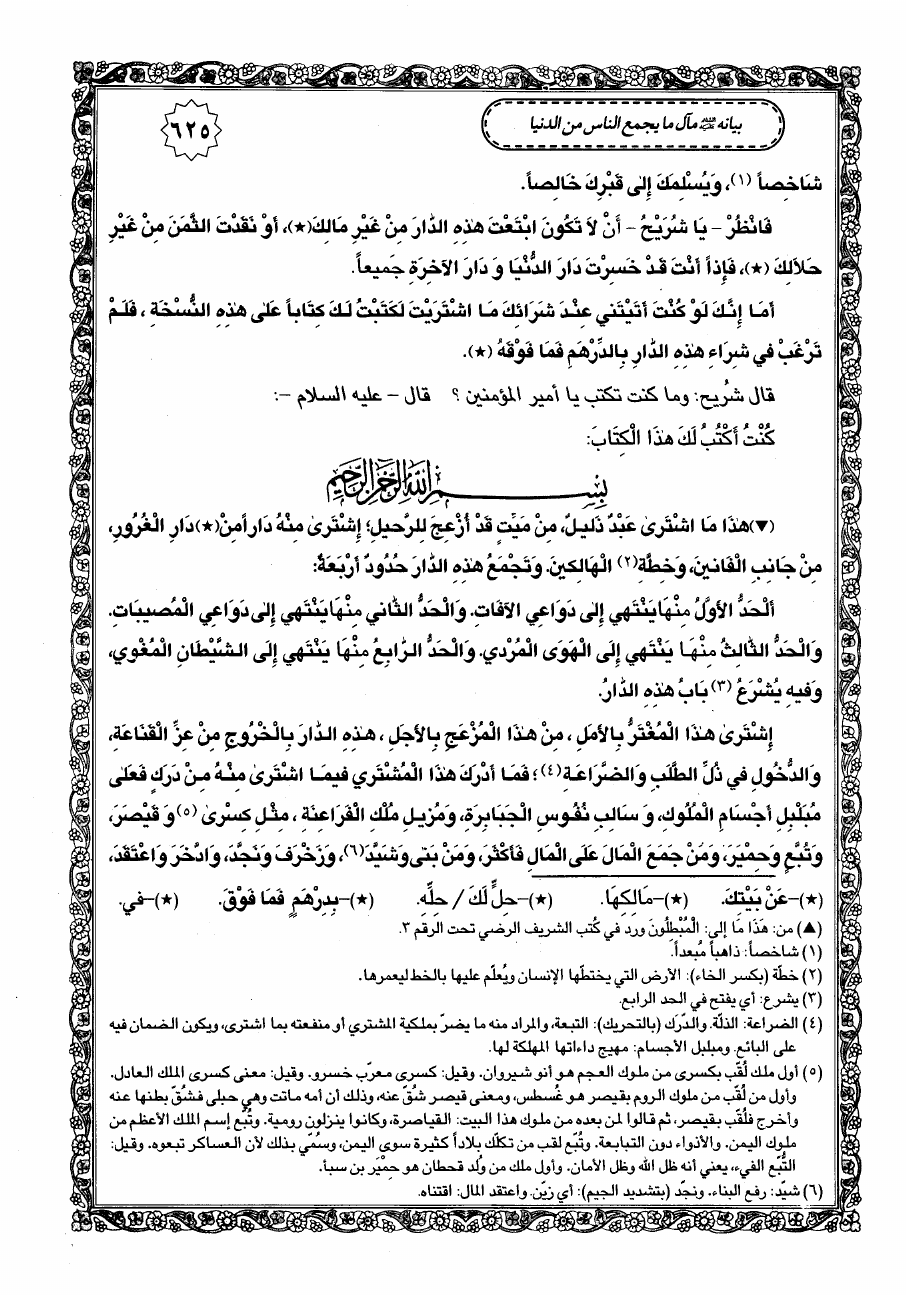 بيانه ﷺ مآل ما يجمع الناس من الدنيا
٦٢٥
شَاخِصاً (١)، وَيُسْلِمَكَ إِلى قَبْرِكَ خَالِصاً.
فَانْظُرْ - يَا شُرَيْحُ - أَنْ لاَ تَكُونَ ابْتَعْتَ هٰذِهِ الدَّارَ مِنْ غَيْرِ مَالِكَ(★)، أَوْ نَقَدْتَ الثَّمَنَ مِنْ غَيْرِ
حَلاَلِكَ (★)، فَإِذاً أَنْتَ قَدْ خَسِرْتَ دَارَ الدُّنْيَا وَ دَارَ الآخِرَةِ جَميعاً.
أَمَا إِنَّكَ لَوْ كُنْتَ أَتَيْتَني عِنْدَ شَرَائِكَ مَا اشْتَرَيْتَ لَكَتَبْتُ لَكَ كِتَاباً عَلٰى هٰذِهِ النُّسْخَةِ ، فَلَمْ
تَرْغَبْ في شِرَاءِ هٰذِهِ الدَّارِ بِالدِّرْهَمِ فَمَا فَوْقَهُ (★).
قال شُريح: وما كنت تكتب يا أمير المؤمنين ؟ قال - عليه السلام -:
كُنْتُ أَكْتُبُ لَكَ هٰذَا الْكِتَابَ:
بِسْمِ اللهِ الرَّحْمٰنِ الرَّحيمِ
(▼)هٰذَا مَا اشْتَرىٰ عَبْدٌ ذَليلٌ، مِنْ مَيِّتٍ قَدْ أُزْعِجَ لِلرَّحيلِ؛ إِشْتَرىٰ مِنْهُ دَاراً مِنْ(★)دَارِ الْغُرُورِ،
مِنْ جَانِبِ الْفَانينَ، وَخِطَّةِ(٢) الْهَالِكينَ. وَتَجْمَعُ هٰذِهِ الدَّارَ حُدُودٌ أَرْبَعَةٌ:
أَلْحَدُّ الأَوَّلُ مِنْهَا يَنْتَهي إِلى دَوَاعِي الآفَاتِ. وَالْحَدُّ الثَّاني مِنْهَا يَنْتَهي إِلى دَوَاعِي الْمُصيبَاتِ.
وَالْحَدُّ الثَّالِثُ مِنْهَا يَنْتَهي إِلَى الْهَوَى الْمُرْدي. وَالْحَدُّ الرَّابِعُ مِنْهَا يَنْتَهي إِلَى الشَّيْطَانِ الْمُغْوي،
وَفيهِ يُشْرَعُ (٣) بَابُ هٰذِهِ الدَّارُ.
إِشْتَرىٰ هٰذَا الْمُغْتَرُّ بِالأَمَلِ ، مِنْ هٰذَا الْمُزْعَجِ بِالأَجَلِ ، هٰذِهِ الدَّارَ بِالْخُرُوجِ مِنْ عِزِّ الْقَنَاعَةِ،
وَالدُّخُولِ في ذُلِّ الطَّلَبِ وَالضَّرَاعَةِ(٤)؛ فَمَا أَدْرَكَ هٰذَا الْمُشْتَري فيمَا اشْتَرىٰ مِنْهُ مِنْ دَرَكٍ فَعَلى
مُبَلْبِلِ أَجْسَامِ الْمُلُوكِ، وَ سَالِبِ نُفُوسِ الْجَبَابِرَةِ، وَمُزيلِ مُلْكِ الْفَرَاعِنَةِ ، مِثْلِ كِسْرىٰ (٥)وَ قَيْصَرَ،
وَتُبَّعٍ وَحِمْيَرَ، وَمَنْ جَمَعَ الْمَالَ عَلَى الْمَالِ فَأَكْثَرَ، وَمَنْ بَنى وَشَيَّدَ(٦)، وَزَخْرَفَ وَنَجَّدَ، وَادَّخَرَ وَاعْتَقَدَ،
(★)-عَنْ بَيْتِكَ. (★)-مَالِكِهَا. (★)-حِلٍّ لَكَ / حِلِّهِ. (★)-بِدِرْهَمٍ فَمَا فَوْقَ. (★)-في.
(▲) من: هَذَا مَا إلى: الْمُبْطِلُونَ ورد في كُتب الشريف الرضي تحت الرقم ٣.
(١) شاخصاً: ذاهباً مُبعداً.
(٢) خطّة (بكسر الخاء): الأرض التي يختطّها الإنسان ويُعلّم عليها بالخط ليعمرها.
(٣) يشرع: أي يفتح في الحد الرابع.
(٤) الضراعة: الذلّة. والدَّرَك (بالتحريك): التبعة، والمراد منه ما يضرّ بملكية المشتري أو منفعته بما اشترى، ويكون الضمان فيه
على البائع. ومبلبل الأجسام: مهيج داءاتها المهلكة لها.
(٥) أول ملك لُقّب بكسرى من ملوك العجم هو أنو شيروان. وقيل: كسرى معرّب خسرو. وقيل: معنى كسرى الملك العادل.
وأول من لُقّب من ملوك الروم بقيصر هو غُسطس، ومعنى قيصر شُقّ عنه، وذلك أن أمه ماتت وهي حبلى فشُقّ بطنها عنه
وأخرج فلُقّب بقيصر، ثم قالوا لمن بعده من ملوك هذا البيت: القياصرة، وكانوا ينزلون رومية. وتُبّع إسم الملك الأعظم من
ملوك اليمن. والأذواء دون التبابعة. وتُبّع لقب من تكلّك بلاداً كثيرة سوى اليمن، وسُمّي بذلك لأن العساكر تبعوه. وقيل:
التُّبع الفيء، يعني أنه ظل الله وظل الأمان. وأول ملك من وُلد قحطان هو حِمْيَر بن سبأ.
(٦) شيّد: رفع البناء. ونجّد (بتشديد الجيم): أي زيّن. واعتقد المال: اقتناه.